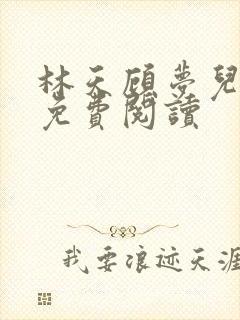 林天顾夢兒
免費閱讀
我要浪迹天涯